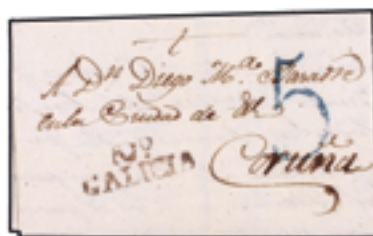 A Dn Diego Ma.
en la Ciudad de
5
Coruña
GALICIA